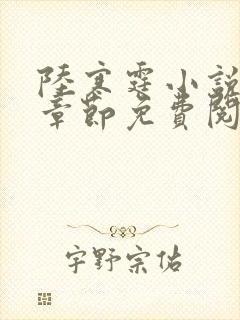 陸寒霆小說
章節免費閱
宇野宗佑